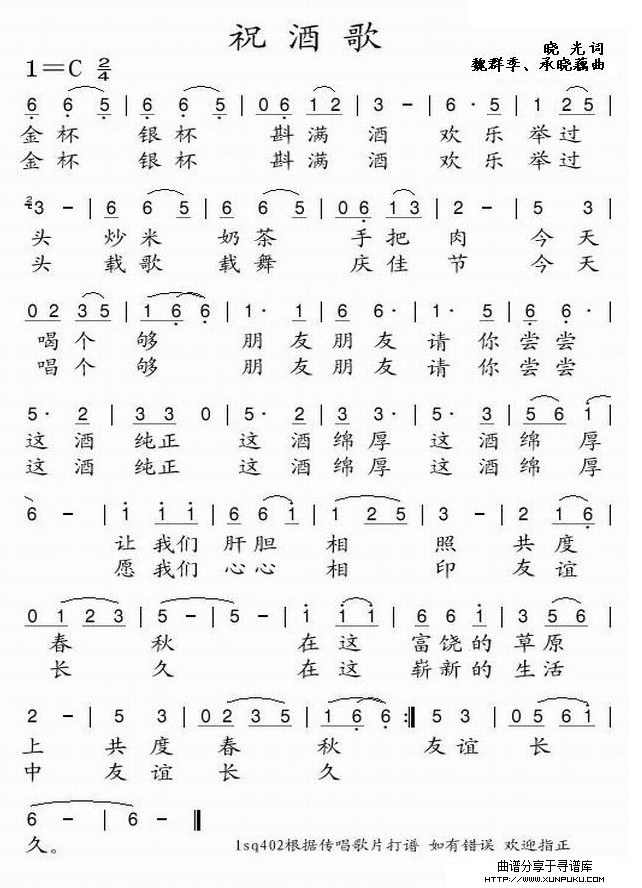 祝酒歌
1=C 2/4
晓光词
魏群季、承晓藕曲
6 6 5 | 6 6 5 | 0 6 1 2 | 3 - | 6· 5 | 1 2 5 |
金杯 银杯 斟满 酒 欢乐举过
金杯 银杯 斟满 酒 欢乐举过
2/4 3 - | 6 6 5 | 6 6 5 | 0 6 1 3 | 2 - | 5 3 |
头 炒米 奶茶 手把 肉 今天
头 载歌 载舞 庆佳 节 今天
0 2 3 5 | 1 6 6 | 1· 1 | 6 6· | 1· 5 | 6 6· |
喝个 够 朋友朋友 请你尝尝
唱个 够 朋友朋友 请你尝尝
5· 2 | 3 3 0 | 5· 2 | 3 3· | 5· 2 | 5 6 1 |
这酒 纯正 这酒绵厚 这酒绵厚
这酒 纯正 这酒绵厚 这酒绵厚
6 - | 1 1 1 | 6 6 1 | 1 2 5 | 3 - | 2 1 6 |
让我们 肝胆 相 照 共度
愿我们 心心 相 印 友谊
0 1 2 3 | 5 - | 5 - | 1 1 1 | 6 6 1 | 3 5 6 |
春 秋 在这 富饶的 草原
长 久 在这 崭新的 生活
2 - | 5 3 | 0 2 3 5 | 1 6 6 :‖ 5 3 | 0 5 6 1 |
上 共度 春 秋 友谊 长
中 友谊 长 久
6 - | 6 - ‖
久。
lsq402根据传唱歌片打谱 如有错误 欢迎指正
曲谱分享于寻谱库
HTTP://WWW.XUNPUKU.COM